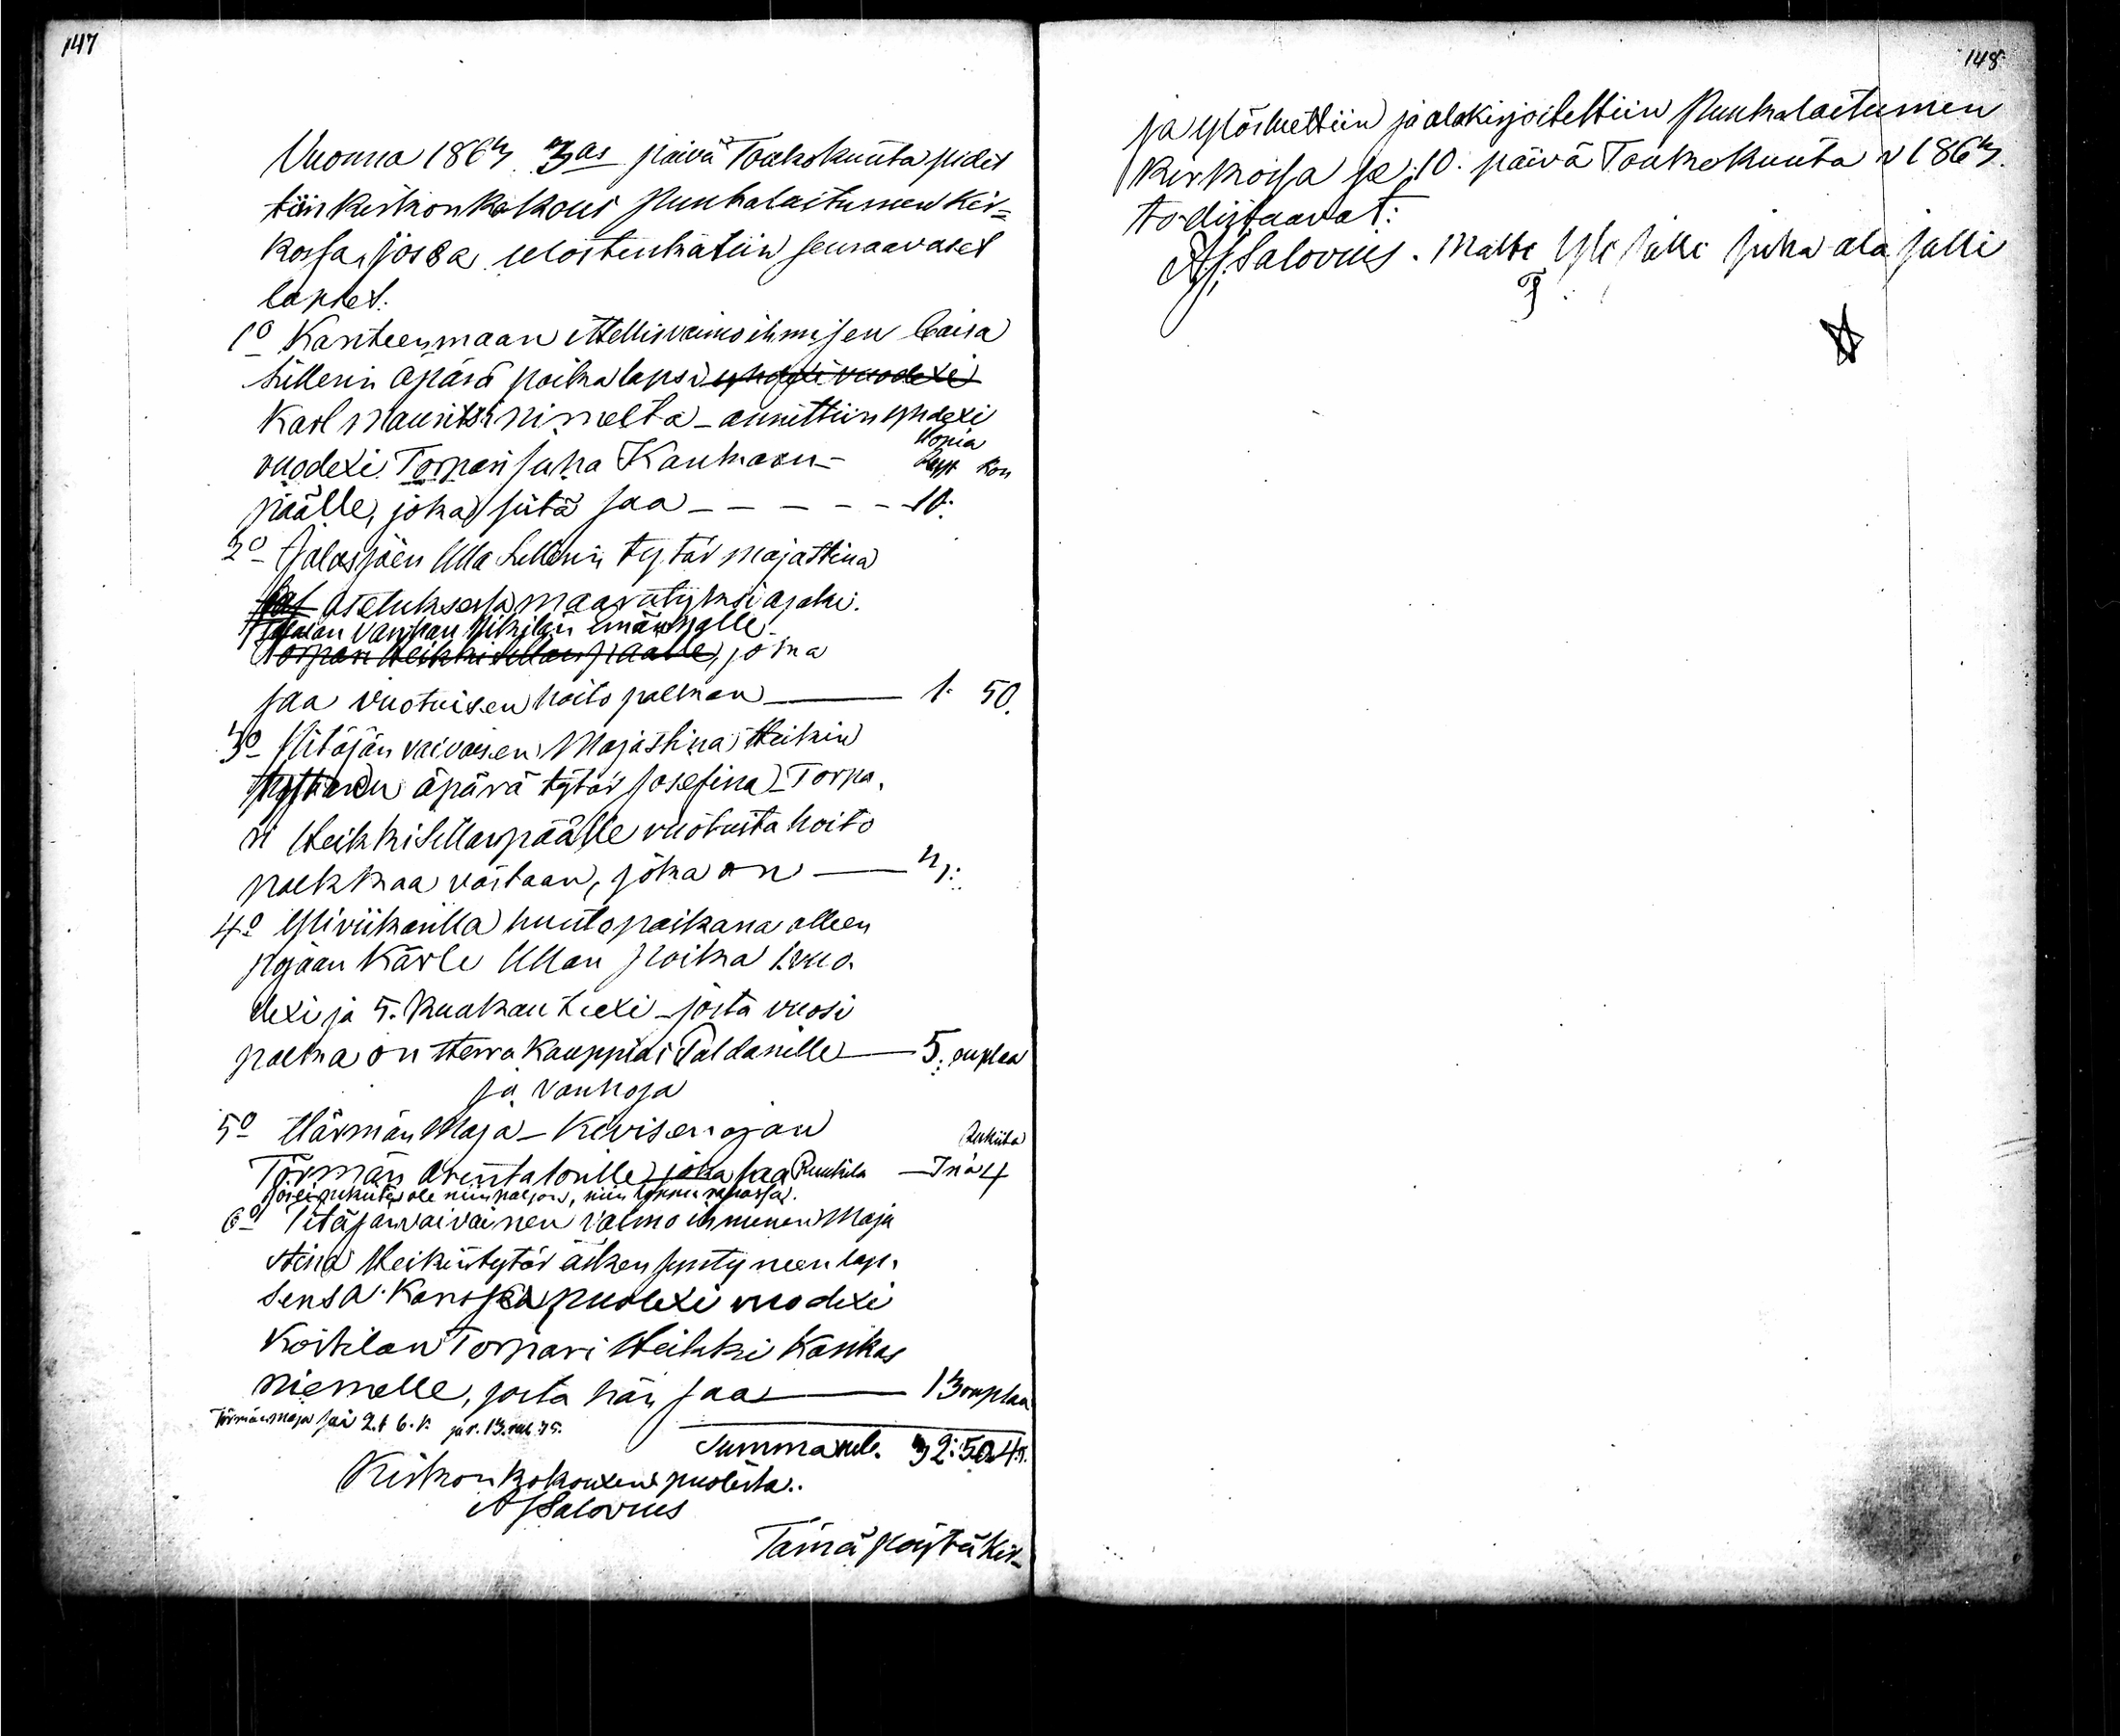 147
Vuonna 1863. 3as päivä Toukokuuta pidet
tiin kirkonkokous Punkalaitumen kir=
kossa, jossa ulostenhatiin seuraavaset
lapset:
1o Kanteenmaan ittellisvaimoihmisen Caisa
Sillerin äpärä poikalapsi yhdexi vuodexi
Karl Mauritsi nimelta – annettiin yhdexi
Hopia
vuodexi Torpari Juha Kauhasen – Kop
päälle, joka siitä saa – – – – – 10.
2o Jalasjäen Ulla Sillerin tytär Majastina
asetuksesta määrätyksi ajaksi.
Vanhan emännälle
Torpari Heikki Sillan päälle, joka
saa vuotuisen hoito palkan — 1. 50.
3o Pitäjän vaivaisen Majastina Heikin
tyttaren äpärä tytär Josefina – Torpa,
ri Heikki Sillan päälle vuotuista hoito
palkkaa vastaan, joka on — 3.
4o Yliviikarilla huutopaikana olleen
pojaan Kärle Ullan poika 1. vuo.
dexi ja 5. kuukautexi – josta vuosi
palka on Herra Kauppias Paldanille — 5. ruplaa
ja vanhoja
5o Härmän Maja – Kivisenojan
Rukiita
Törmän arentatorille joka saa Ruukila — Tn'ä 4
jos ei rukiita ole niin paljon, niin
6o Pitäjänvaivainen vaimo ihminen Maja
Stina Heikintytär äsken syntyneen lap,
sensa kansa puolexi vuodexi
Koitilan Torpari Heikki Kankas
niemelle, josta hän saa — 13 ruplaa
Törmän Maja sai 2. t 6. k. ja r. 13. rub 75.
Summa rub. 32:50. 4 t.
Kirkonkokouxen puolesta.
A J Salovius
Tämä pöytäkir=
148
ja ylösluettiin ja alakirjoitettiin Punkalaitumen
kirkossa se 10. päivä Toukokuuta v 1863.
todistaavat:
A J Salovius. Matti Yli Jalli Juha ala Jalli